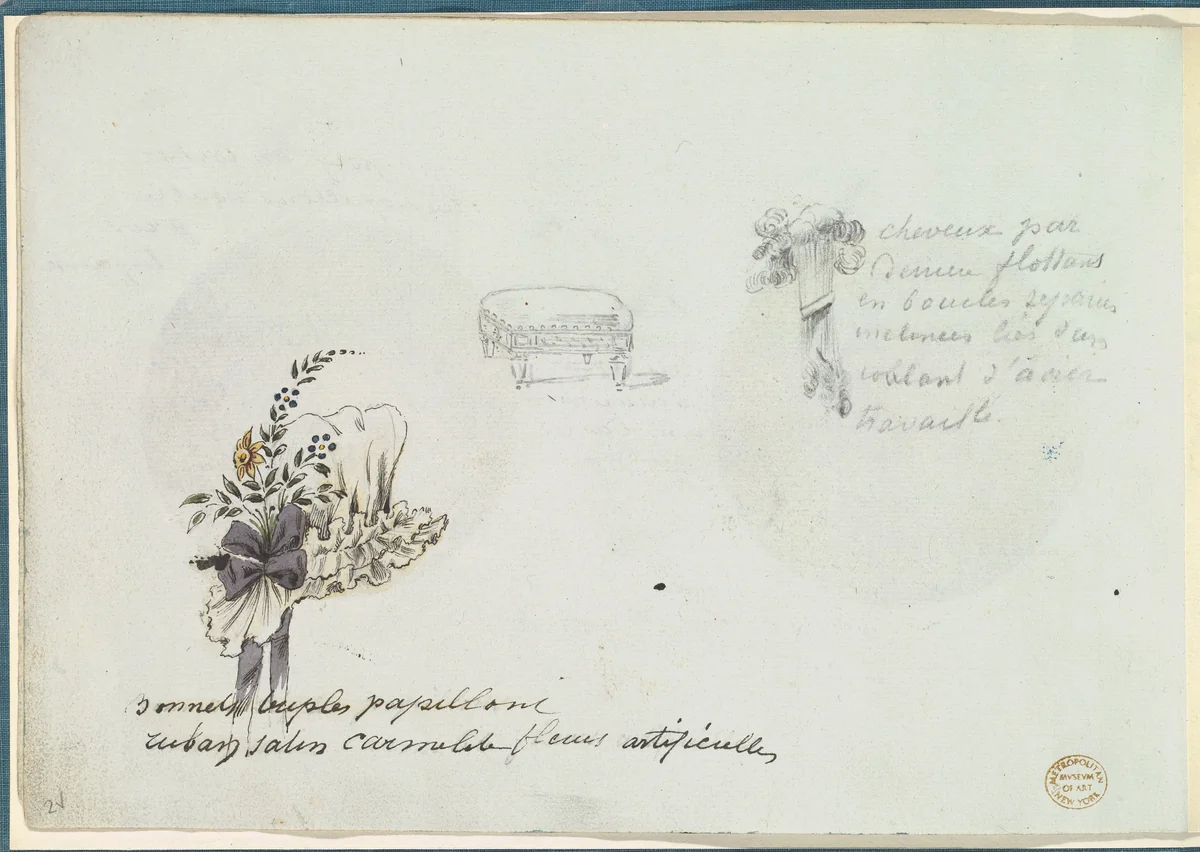 cheveux par
derriere flottans
en boucles
liés dans
coulant d'acier
travaillé.
Bonnets triples papillons
ruban satin carmelite fleurs artificielles
METROPOLITAN
MVSEVM
OF ART
NEW YORK
2v